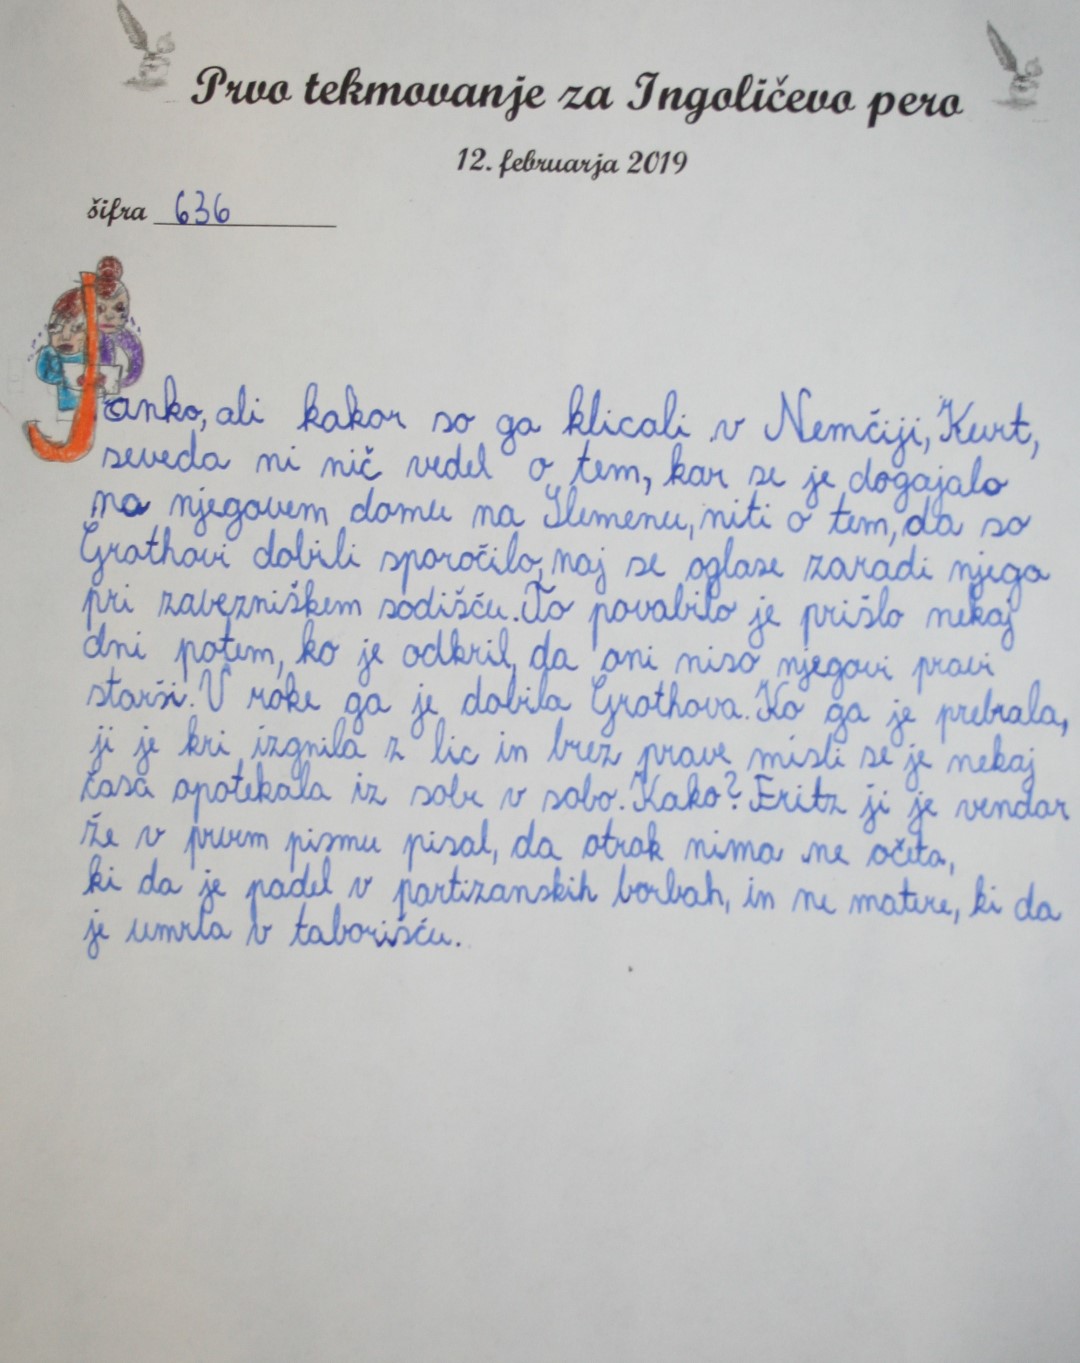 Prvo tekmovanje za Ingoličevo pero
12. februarja 2019
šifra 636
Janko, ali kakor so ga klicali v Nemčiji, Kurt,
seveda ni nič vedel o tem, kar se je dogajalo
na njegovem domu na Slemenu, niti o tem, da so
Grothovi dobili sporočilo, naj se oglase zaradi njega
pri zavezniškem sodišču. To povabilo je prišlo nekaj
dni potem, ko je odkril, da oni niso njegovi pravi
starši. V roke ga je dobila Grothova. Ko ga je prebrala,
ji je kri izgnila z lic in brez prave misli se je nekaj
časa opotekala iz sobe v sobo. Kako? Fritz ji je vendar
že v prvem pismu pisal, da otrok nima ne očeta,
ki da je padel v partizanskih borbah, in ne matere, ki da
je umrla v taborišču.